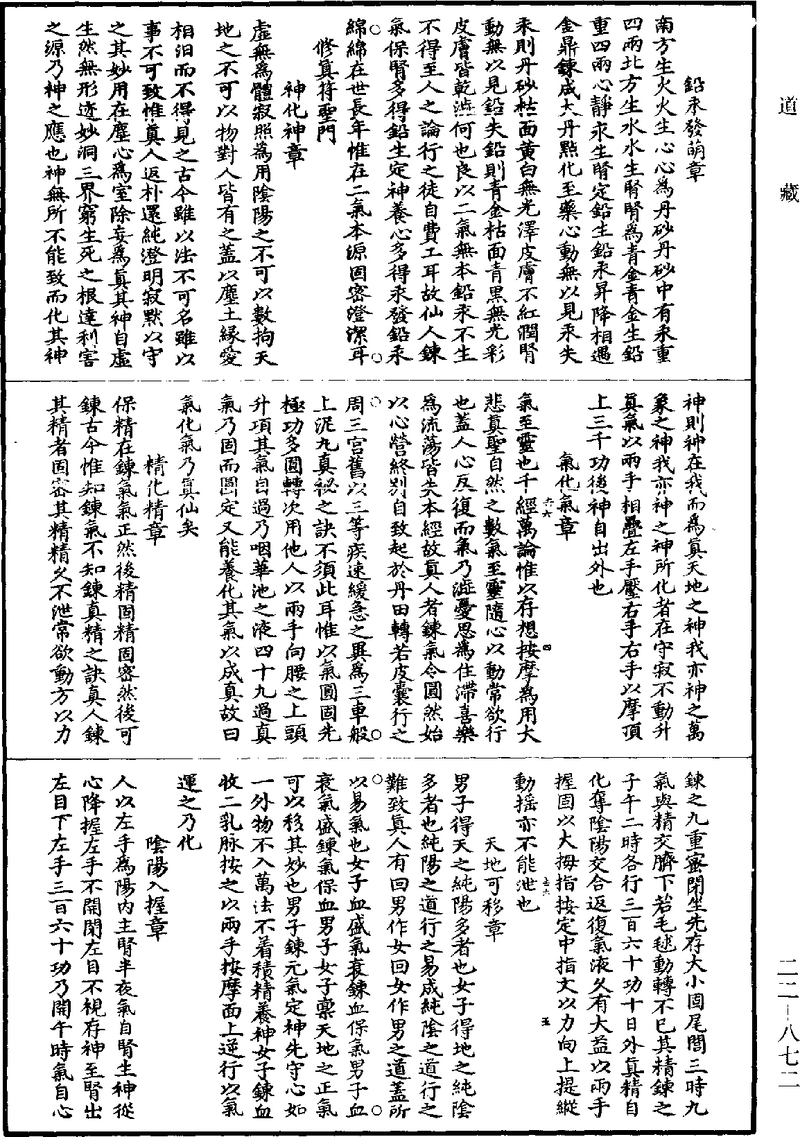 道藏
鉛汞發萌章
南方生火火生心心為丹砂丹砂中有汞重
四兩北方生水水生腎腎為青金青金生鉛
重四兩心靜汞生腎定鉛生鉛汞昇降相遇
金鼎鍊成大丹點化至藥心動無以見汞失
汞則丹砂枯面黃白無光澤皮膚不紅潤腎
動無以見鉛失鉛則青金枯面青黑無光彩
皮膚皆乾燥何也良以二氣無本鉛汞不生
不得至人之論行之徒自費工耳故仙人鍊
氣保腎多得鉛生定神養心多得汞發鉛汞
綿綿在世長年惟在二氣本源固密澄潔耳
修真符聖門
神化神章
虛無為體寂照為用陰陽之不可以數拘天
地之不可以物對人皆有之蓋以塵土緣愛
相汨而不得見之古今雖以法不可名雖以
事不可致惟真人返朴還純澄明寂默以守
之其妙用在塵心為室除妄為真其神自虛
生然無形迹妙洞三界窮生死之根達利害
之源乃神之應也神無所不能致而化其神
神則神在我而為真天地之神我亦神之萬
象之神我亦神之神所化者在守寂不動升
真氣以兩手相疊左手壓右手右手以摩頂
上三千功後神自出外也
氣化氣章
氣至靈也千經萬論惟以存想按摩為用大
悲真聖自然之數氣至靈隨心以動常欲行
也蓋人心反復而氣乃澁憂思為住滯喜樂
為流蕩皆失本經故真人者鍊氣令圓然始
以心營終別自致起於丹田轉若皮囊行之
周三宮舊以三等疾速緩急之異為三車般
上泥丸真祕之訣不須此耳惟以氣圓固先
極功多圓轉次用他人以兩手向腰之上頭
升項其氣自過乃咽華池之液四十九過真
氣乃固而圓定又能養化其氣以成真故曰
氣化氣乃真仙矣
精化精章
保精在鍊氣氣正然後精固精固密然後可
鍊古今惟知鍊氣不知鍊真精之訣真人鍊
其精者固密其精精久不泄常欲動方以力
鍊之九重蜜閉坐先存大小固尾閭三時九
氣與精交臍下若毛毬動轉不已其精鍊之
子午二時各行三百六十功十日外真精自
化奪陰陽交合返復氣液久有大益以兩手
握固以大拇指按定中指文以力向上提縱
動搖亦不能泄也
天地可移章
男子得天之純陽多者也女子得地之純陰
多者也純陽之道行之易成純陰之道行之
難致真人有回男作女回女作男之道蓋所
以易氣也女子血盛氣衰鍊血保氣男子血
衰氣盛鍊氣保血男子女子稟天地之正氣
可以移其妙也男子鍊元氣定神先守心如
一外物不入萬法不着積精養神女子鍊血
收二乳脉按之以兩手按摩面上逆行以氣
運之乃化
陰陽入握章
人以左手為陽內主腎半夜氣自腎生神從
心降握左手不開閉左目不視存神至腎出
左目下左手三百六十功乃開午時氣自心
二二－八七二